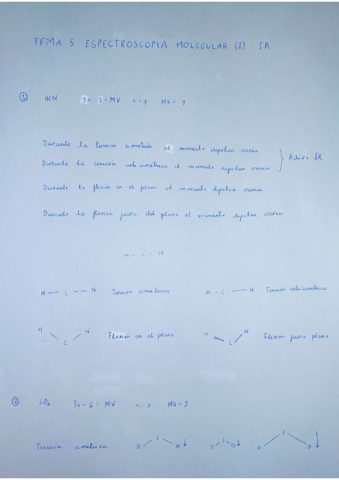 TEMA 5 ESPECTROSCOPIA MOLECULAR (I) : IR
① HCN 3n - 5 = MV n = 3 MV = 4
Durante la tensión simétrica el momento dipolar varía
Durante la tensión antisimétrica el momento dipolar varía } Activo IR
Durante la flexión en el plano el momento dipolar varía
Durante la flexión fuera del plano el momento dipolar varía
H - C - N
H — C — N Tensión simétrica H - C — N Tensión antisimétrica
H C N Flexión en el plano H C N Flexión fuera plano
② SO₂ 3n - 6 = MV n = 3 MV = 3
Tensión simétrica O S O O S O O S O